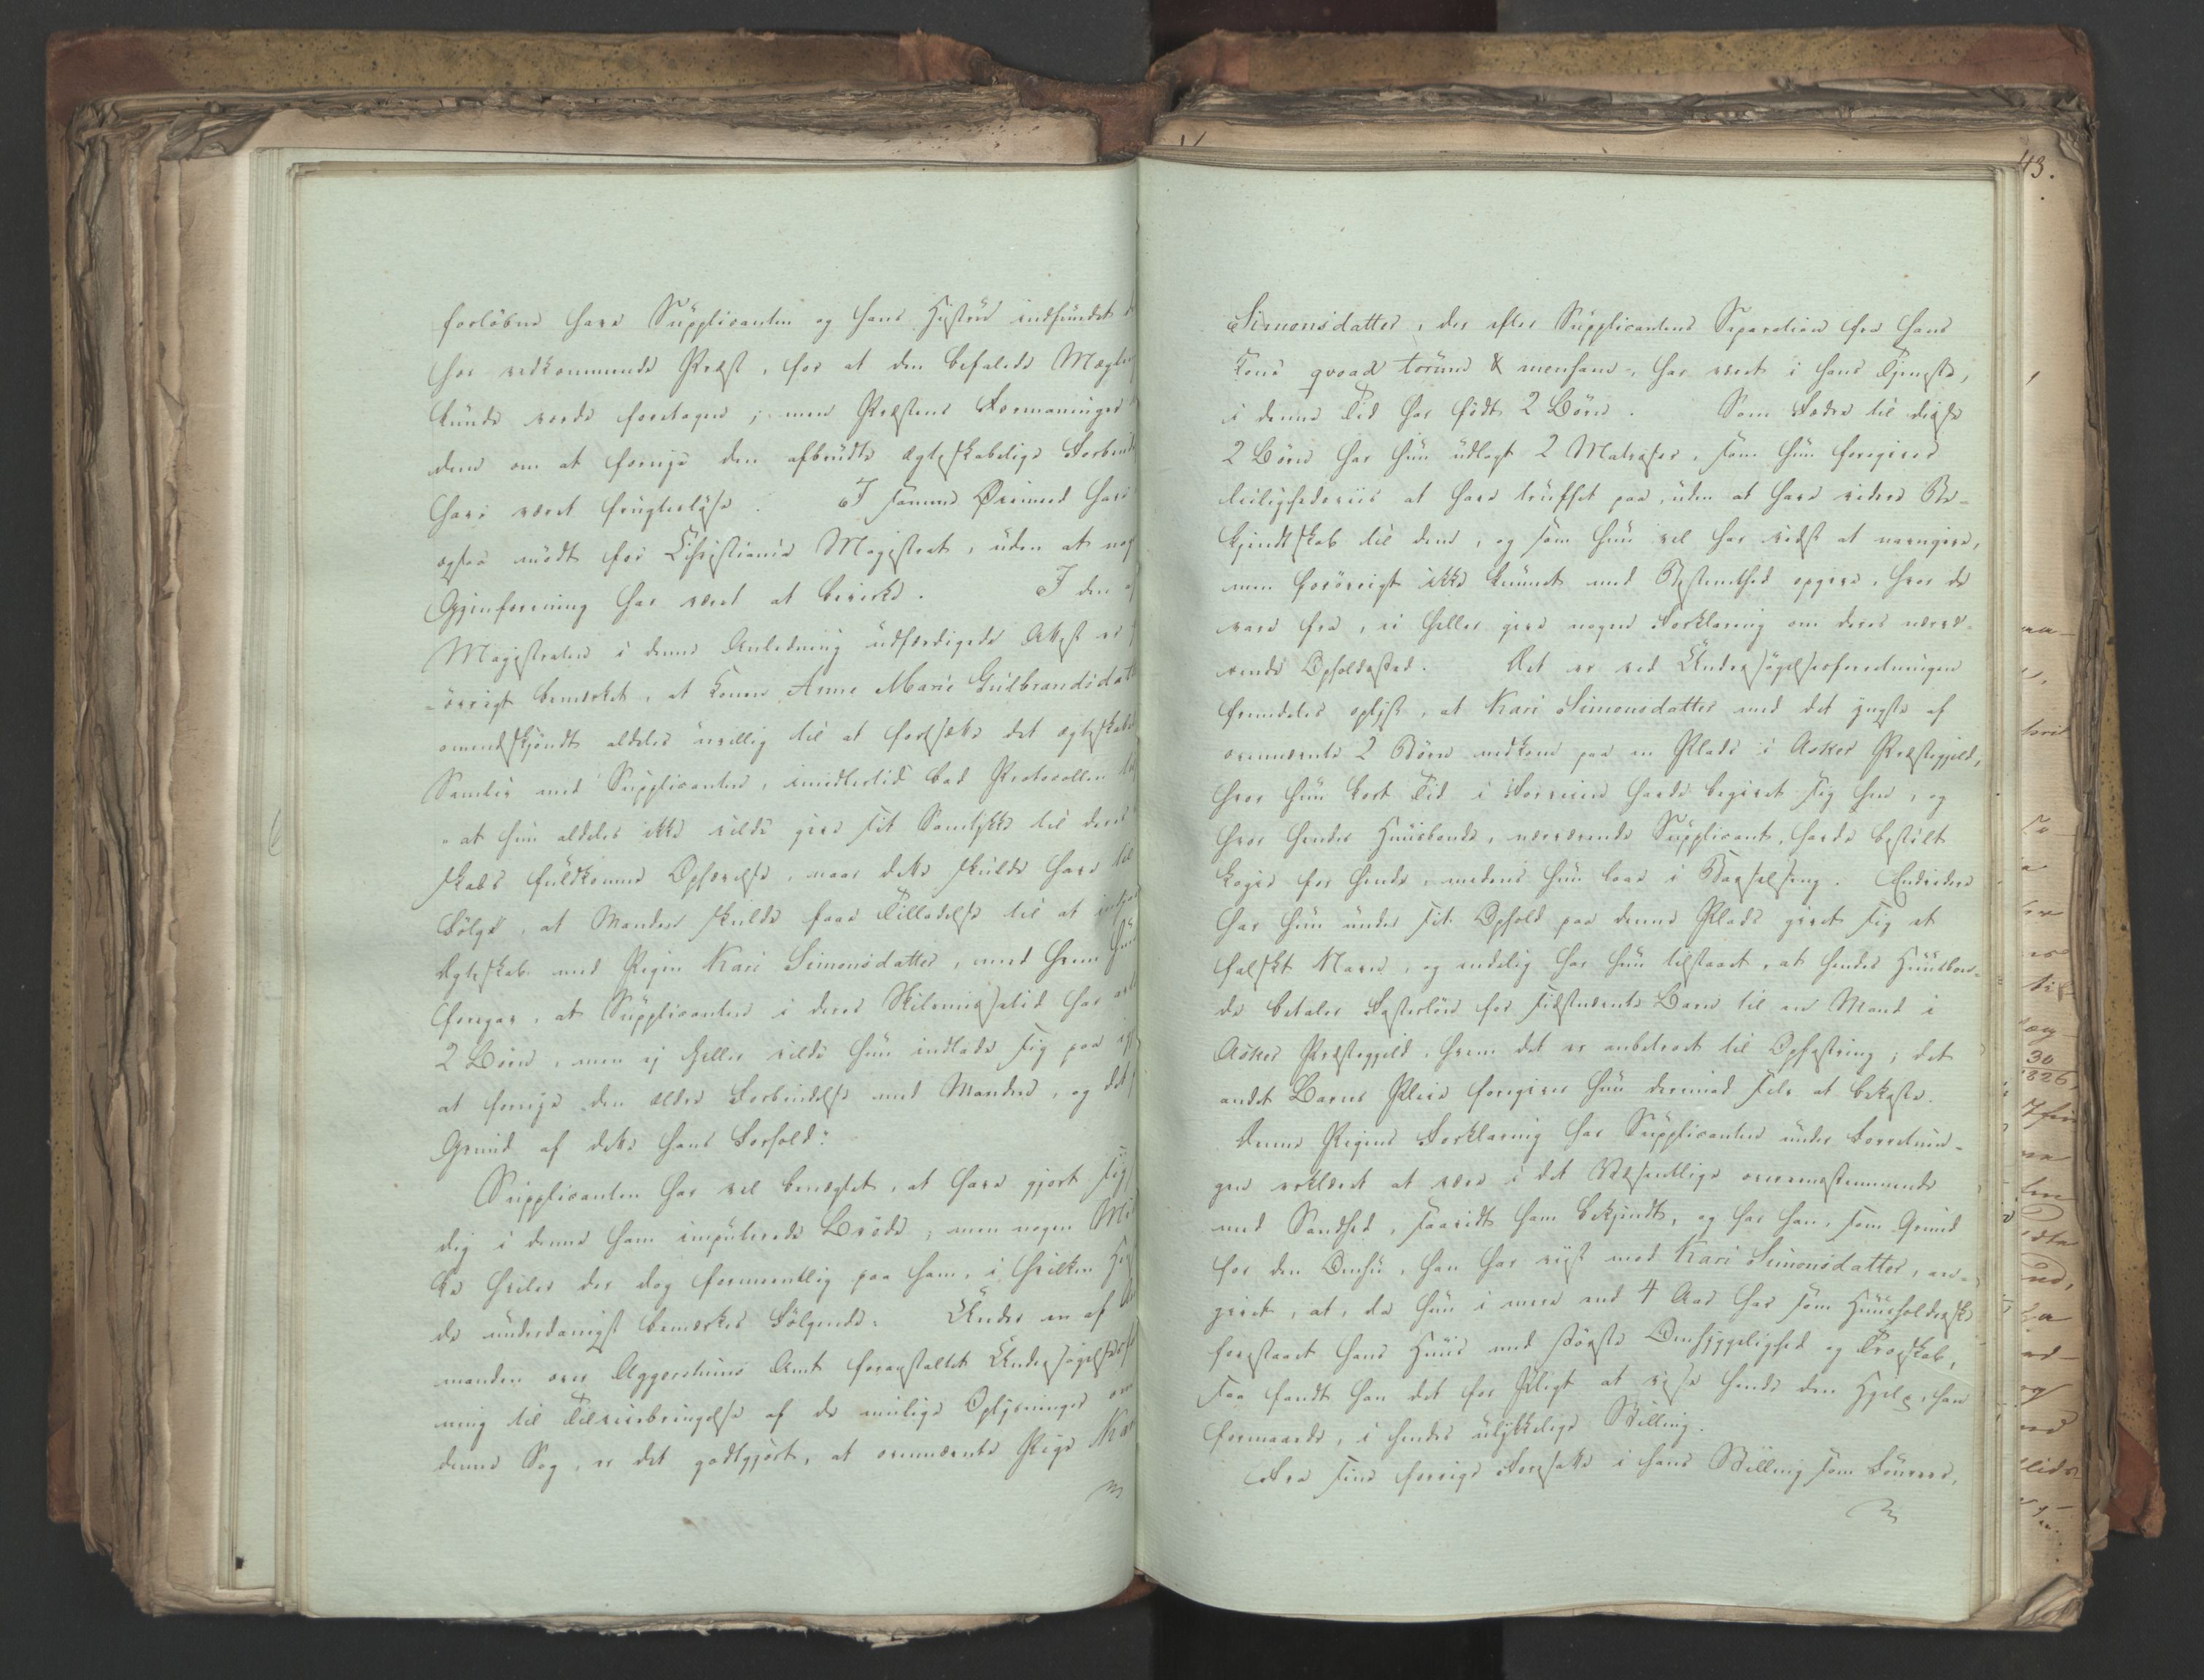 forløbne have Supplicanten og hans Hustrue indfundet
hos vedkommende Præst, for at den befalede Mægl
kunde vorde foretagen; men Præstens Formaninger
dem om at fornye den afbrudte ægteskabelige Forbind
have været frugtesløse. I samme Øiemed have
ogsaa mødt for Christiania Magistrat, uden at nog
Gjenforening har været at bevirke. I den
Magistraten i denne Anledning udfærdigede Attest er
-øvrigt bemærket, at Konen Anne Marie Gulbrandsdatt
omendskjøndt aldeles uvillig til at fortsætte det ægteskabel
Samliv med Supplicanten, imidlertid bad Protocollen
"at hun aldeles ikke vilde give sit Samtykke til deres
skabs fuldkomne Ophævelse, naar dette skulde have til
Følge, at Manden skulde faae Tilladelse til at indgaae
Ægteskab med Pigen Kari Simonsdatter, med hvem hun
foregav, at Supplicanten i deres Skilsmissetid har avl
2 Børn, men ej heller vilde hun indlade sig paa
at fornye den ældre Forbindelse med Manden, og det
Grund af dette hans Forhold."
Supplicanten har vel benægtet, at have gjort sig
dig i denne ham imputerede Brøde; men nogen Mis
ke hviler der dog formeentlig paa ham, i hvilken
de underdanigst bemærkes Følgende: Under en af
manden over Aggershuus Amt foranstaltet Undersøgelses
ning til Tilveiebringelse af de muelige Oplysninger om
denne Sag, er det godtgjort, at ovennævnte Pige Kari
43.
Simonsdatter, der efter Supplicantens Separation fra hans
Kone qvoad torum & mensam, har været i hans Tjeneste,
i denne Tid har født 2 Børn. Som Fædre til disse
2 Børn har hun udlagt 2 Matroser, som hun foregiver
leilighedsviis at have truffet paa, uden at have videre Be-
kjendtskab til dem, og som hun vel har vidst at navngive,
men forøvrigt ikke kunnet med Bestemthed opgive, hvor de
vare fra, ei heller give nogen Forklaring om deres nærvæ-
rende Opholdssted. Det er ved Undersøgelsesforretningen
fremdeles oplyst, at Kari Simonsdatter med det yngste af
ovennævnte 2 Børn nedkom paa en Plads i Asker Præstegjeld,
hvor hun kort Tid i Forveien havde begivet sig hen, og
hvor hendes Huusbonde, nærværende Supplicant, havde bestilt
Logis for hende, medens hun laae i Barselseng. Endvidere
har hun under sit Ophold paa denne Plads givet sig et
falskt Navn, og endelig har hun tilstaaet, at hendes Huusbon-
de betaler Fosterløn for sidstnævnte Barn til en Mand i
Asker Præstegjeld, hvem det er anbetroet til Opfostring; det
andet Barns Pleie foregiver hun derimod selv at bekoste.
Denne Pigens Forklaring har Supplicanten under Forretnin-
gen erklæret at være i det Væsentlige overeensstemmende
med Sandhed, saavidt ham bekjendt, og har han, som Grund
for den Omhu, han har viist mod Kari Simonsdatter, an-
givet, at, da hun i mere end 4 Aar har som Huusholderske
forestaaet hans Huus med største Omhyggelighed og Troskab,
saa fandt han det for Pligt at vise hende den Hjelp, han
formaaede, i hendes ulykkelige Stilling.
Fra sine forrige Foresatte i hans Stilling som Foureer,
30
1826,